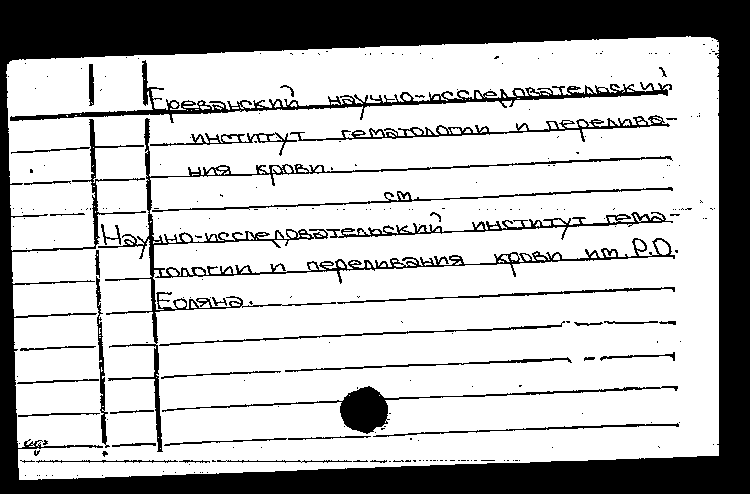 Ереванский научно-исследовательский
институт гематологии и перелива-
ния крови.
см.
Научно-исследовательский институт гема-
тологии и переливания крови им. Р.О.
Еоляна.